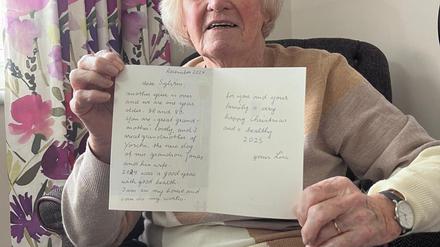 November 2024
dear Sylvia
another year is over
and we are one year
older. 98 and 95.
You are a great grand-
mother. Lovely, and I
a real grandmother of
Yorcha, the nice dog
of my grandson Jonas
and his wife.
2024 was a good year
with good health.
I am in my house and
can do my works.
for you and your
family a very
happy Christmas
and a healthy
2025
yours Lou